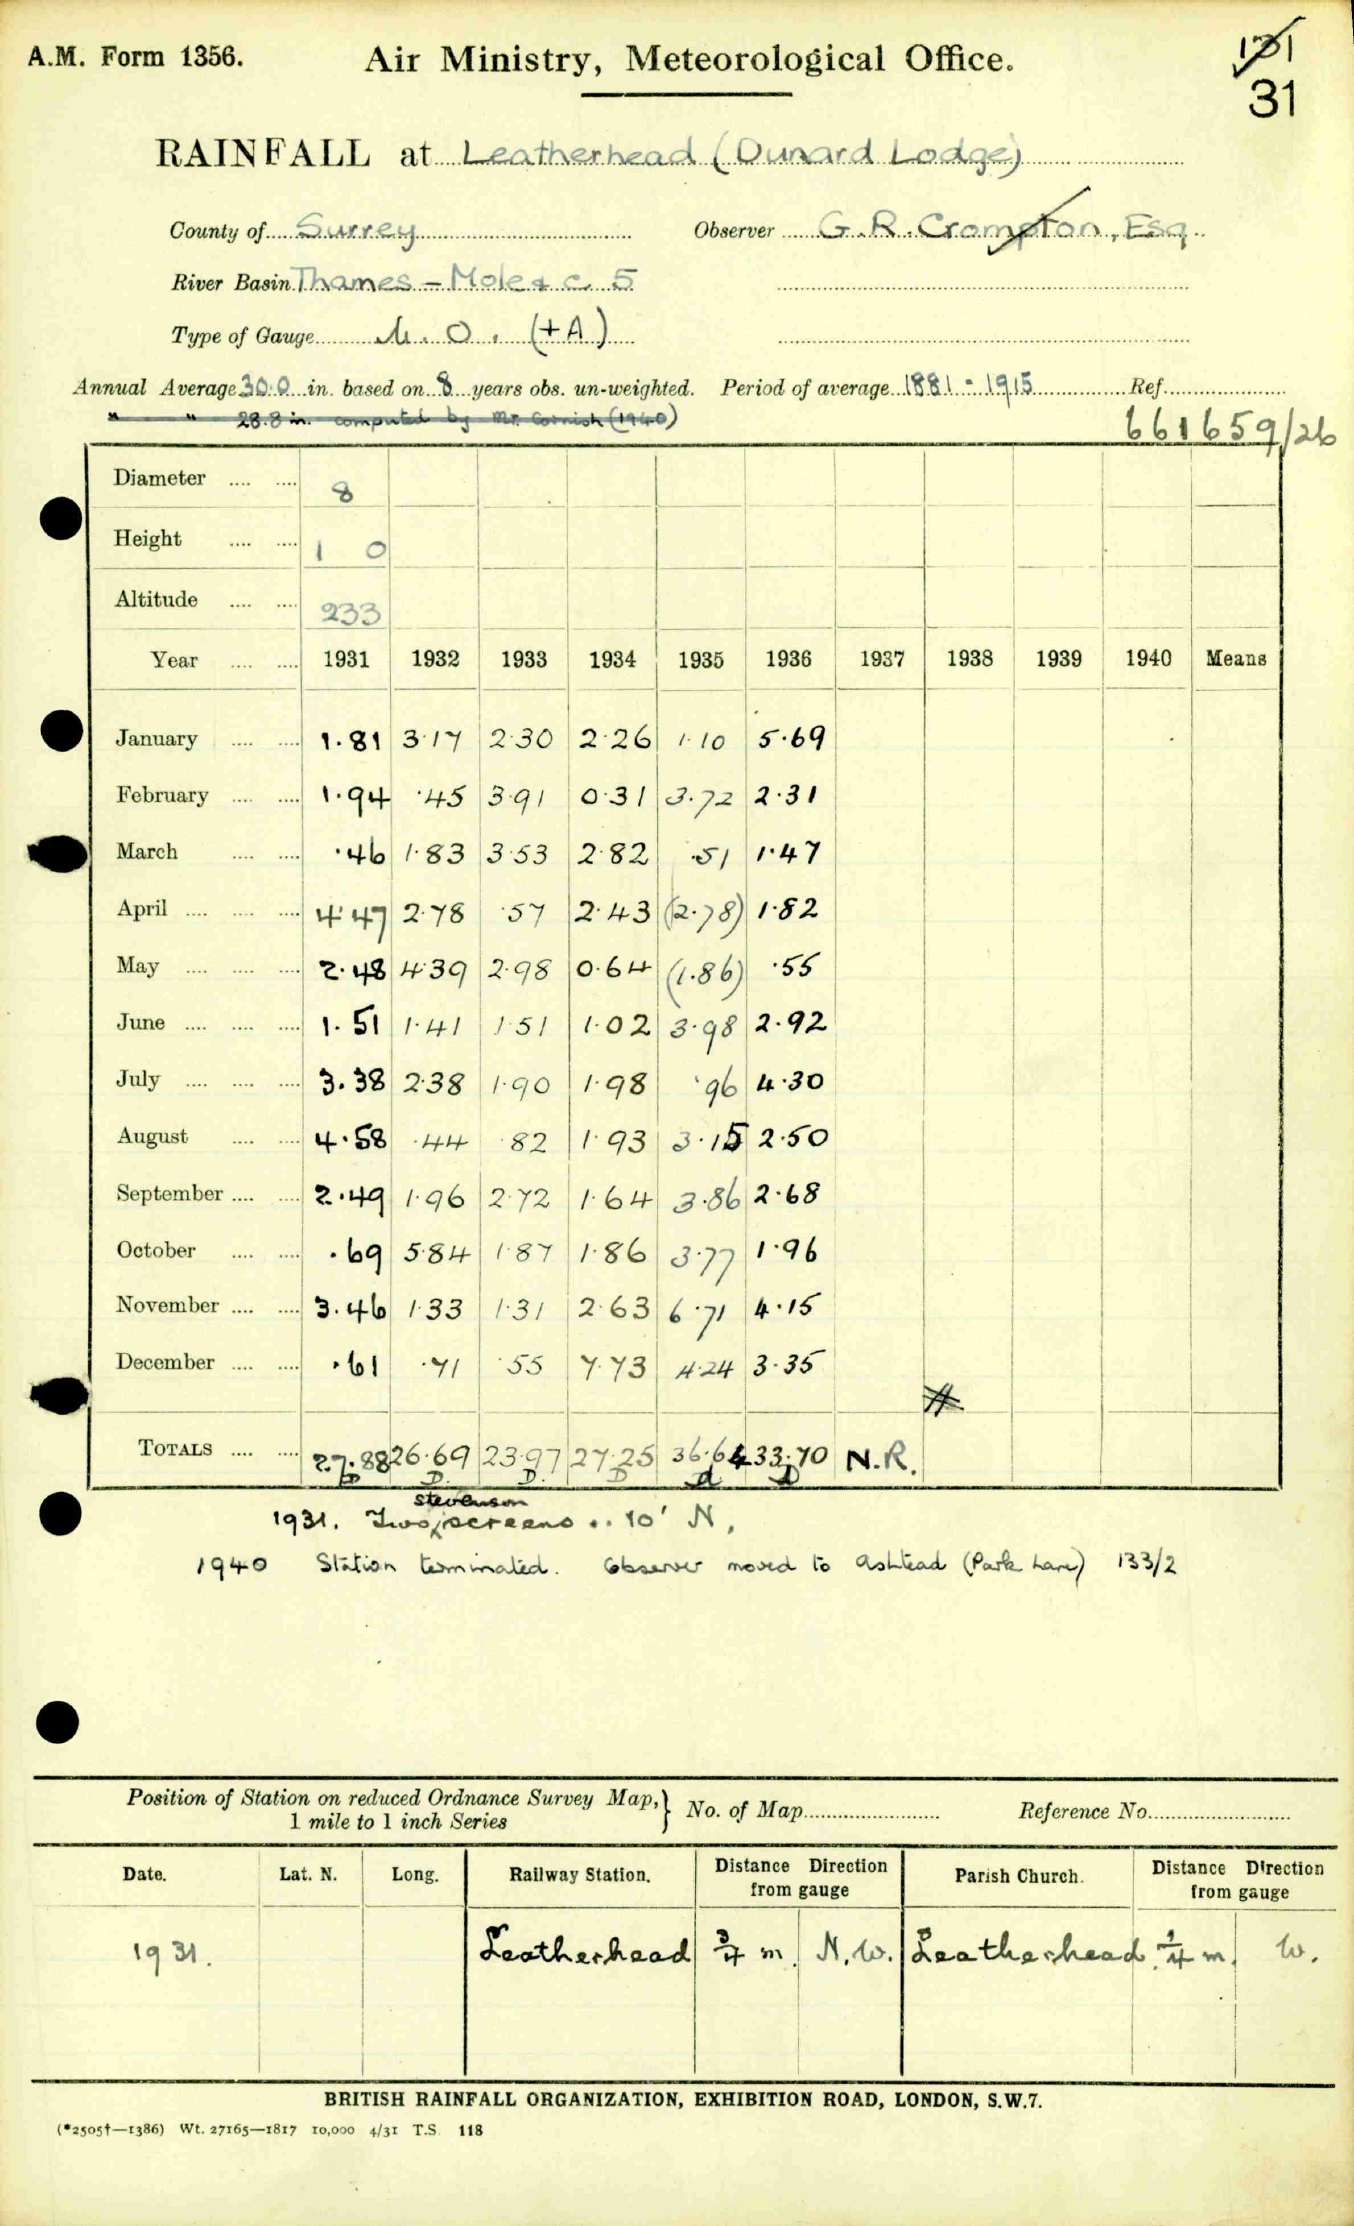 A.M. Form 1356. Air Ministry, Meteorological Office. 131
31
RAINFALL at Leatherhead (Dunard Lodge)
County of Surrey Observer G. R. Crompton, Esq.
River Basin Thames – Mole & c. 5
Type of Gauge M. O. (+A)
Annual Average 30.0 in. based on 8 years obs. un-weighted. Period of average 1881 - 1915 Ref.
" " 28.8 in. computed by Mr. Cornish (1940) 661659/26
Diameter .... .... 8
Height .... .... 1 0
Altitude .... .... 233
Year .... .... 1931 1932 1933 1934 1935 1936 1937 1938 1939 1940 Means
January .... .... 1.81 3.17 2.30 2.26 1.10 5.69
February .... .... 1.94 .45 3.91 0.31 3.72 2.31
March .... .... .46 1.83 3.53 2.82 .51 1.47
April .... .... .... 4.47 2.78 .57 2.43 (2.78) 1.82
May .... .... .... 2.48 4.39 2.98 0.64 (1.86) .55
June .... .... .... 1.51 1.41 1.51 1.02 3.98 2.92
July .... .... .... 3.38 2.38 1.90 1.98 .96 4.30
August .... .... 4.58 .44 .82 1.93 3.15 2.50
September .... .... 2.49 1.96 2.72 1.64 3.86 2.68
October .... .... .69 5.84 1.87 1.86 3.77 1.96
November .... .... 3.46 1.33 1.31 2.63 6.71 4.15
December .... .... .61 .71 .55 7.73 4.24 3.35
TOTALS .... .... 27.88 26.69 23.97 27.25 36.64 33.70 N.R.
D D. D. D D D
1931. Two stevenson screens .. 10' N,
1940 Station terminated. Observer moved to Ashtead (Park Lane) 133/2
Position of Station on reduced Ordnance Survey Map, } No. of Map Reference No.
1 mile to 1 inch Series
Date. Lat. N. Long. Railway Station. Distance Direction from gauge Parish Church. Distance Direction from gauge
1931. Leatherhead 3/4 m. N.W. Leatherhead. 1/4 m. W.
BRITISH RAINFALL ORGANIZATION, EXHIBITION ROAD, LONDON, S.W.7.
(*2505†—1386) Wt. 27165—1817 10,000 4/31 T.S. 118